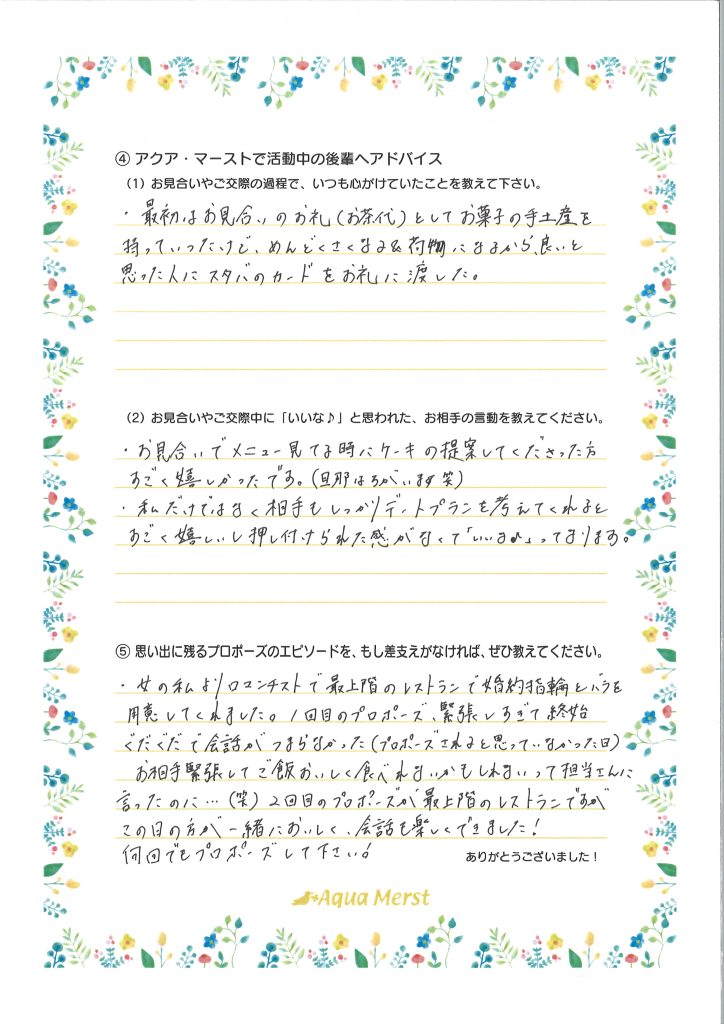 ④ アクア・マーストで活動中の後輩へアドバイス
（1）お見合いやご交際の過程で、いつも心がけていたことを教えて下さい。
・最初はお見合いのお礼（お茶代）としてお菓子の手土産を
持っていったけど、めんどくさくなる&荷物になるから、良いと
思った人にスタバのカードをお礼に渡した。
（2）お見合いやご交際中に「いいな♪」と思われた、お相手の言動を教えてください。
・お見合いでメニュー見てる時にケーキの提案してくださった方
すごく嬉しかったです。（旦那はちがいます笑）
・私だけではなく相手もしっかりデートプランを考えてくれると
すごく嬉しいし押し付けられた感がなくて「いいな♪」ってなります。
⑤ 思い出に残るプロポーズのエピソードを、もし差支えがなければ、ぜひ教えてください。
・女の私よりロマンチストで最上階のレストランで婚約指輪とバラを
用意してくれました。1回目のプロポーズ、緊張しすぎて終始
ぐだぐだで会話がつまらなかった（プロポーズされると思っていなかった日）
お相手緊張してご飯おいしく食べれないかもしれないって担当さんに
言ったのに…（笑）2回目のプロポーズが最上階のレストランですが
この日の方が一緒においしく、会話も楽しくできました！
何回でもプロポーズして下さい！
ありがとうございました！
Aqua Merst